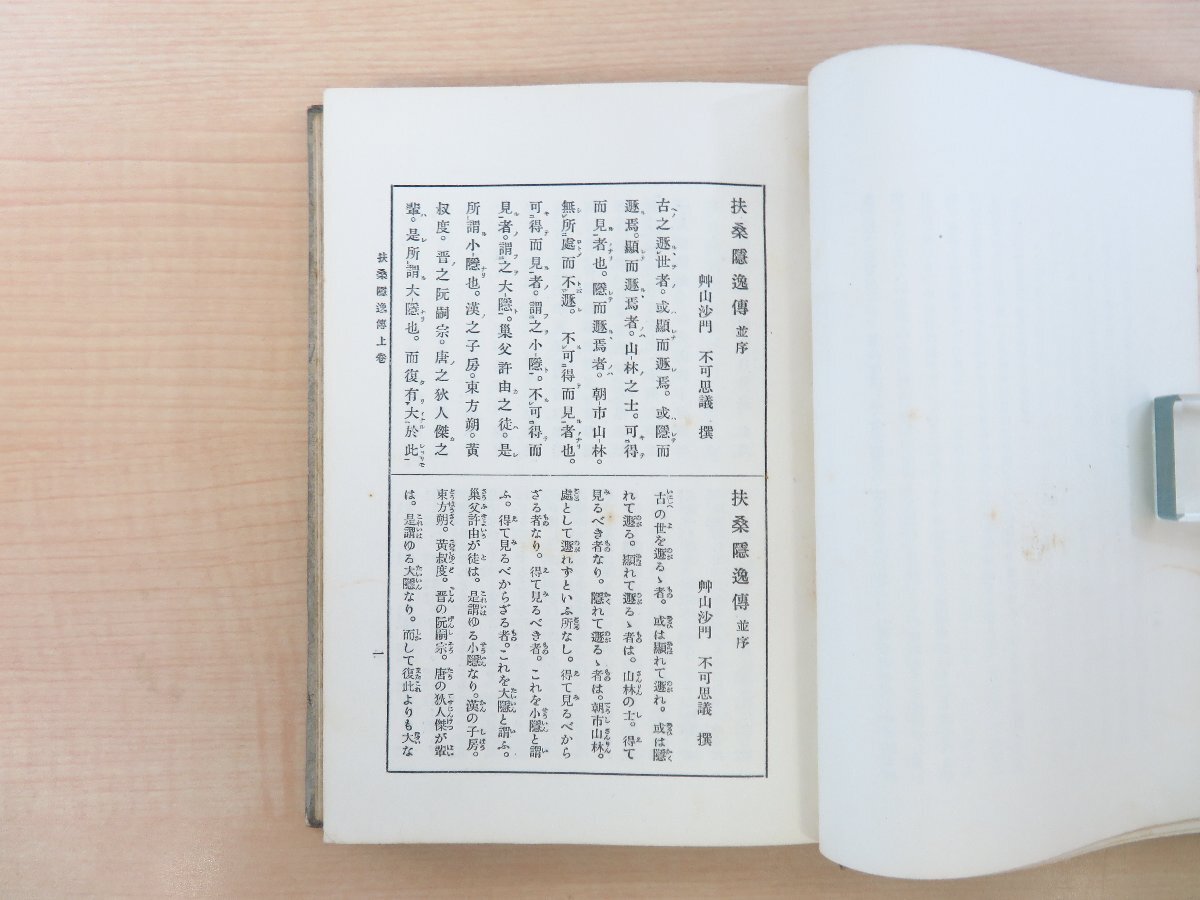 扶桑隱逸傳 並序
艸山沙門 不可思議 撰
古之遯世者。或顯而遯焉。或隱而
遯焉。顯而遯焉者。山林之士。可得
而見者也。隱而遯焉者。朝市山林。
無所處而不遯。不可得而見者也。
可得而見者。謂之小隱。不可得而
見者。謂之大隱。巢父許由之徒。是
所謂小隱也。漢之子房。東方朔。黃
叔度。晋之阮嗣宗。唐之狄人傑之
輩。是所謂大隱也。而復有大於此
扶桑隱逸傳 並序
艸山沙門 不可思議 撰
古の世を遯るゝ者。或は顯れて遯れ。或は隱
れて遯る。顯れて遯るゝ者は。山林の士。得て
見るべき者なり。隱れて遯るゝ者は。朝市山林。
處として遯れずといふ所なし。得て見るべから
ざる者なり。得て見るべき者。これを小隱と謂
ふ。得て見るべからざる者。これを大隱と謂ふ。
巢父許由が徒は。是謂ゆる小隱なり。漢の子房。
東方朔。黃叔度。晋の阮嗣宗。唐の狄人傑が輩
は。是謂ゆる大隱なり。而して復此よりも大な
扶桑隱逸傳上卷
一